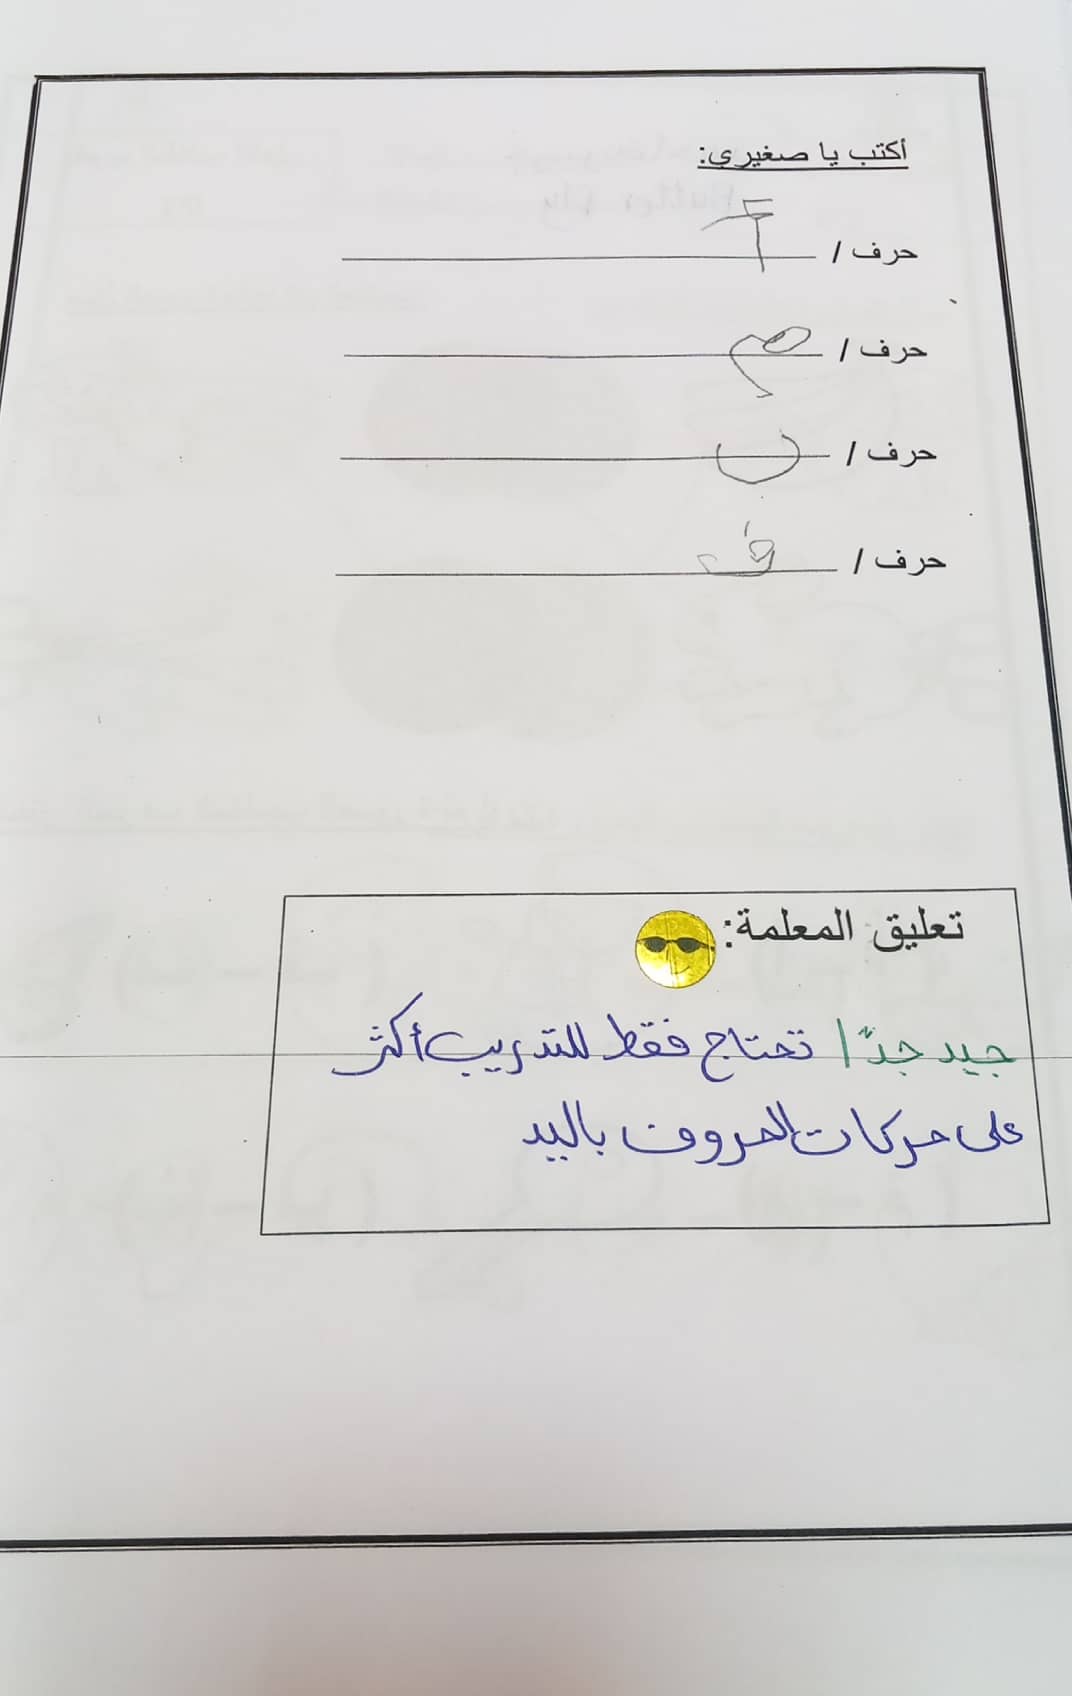 أكتب يا صغيري:
حرف / أ
حرف / م
حرف / ں
حرف / ف
تعليق المعلمة:
جيد جدًا تحتاج فقط للتدريب أكثر
على حركات الحروف باليد